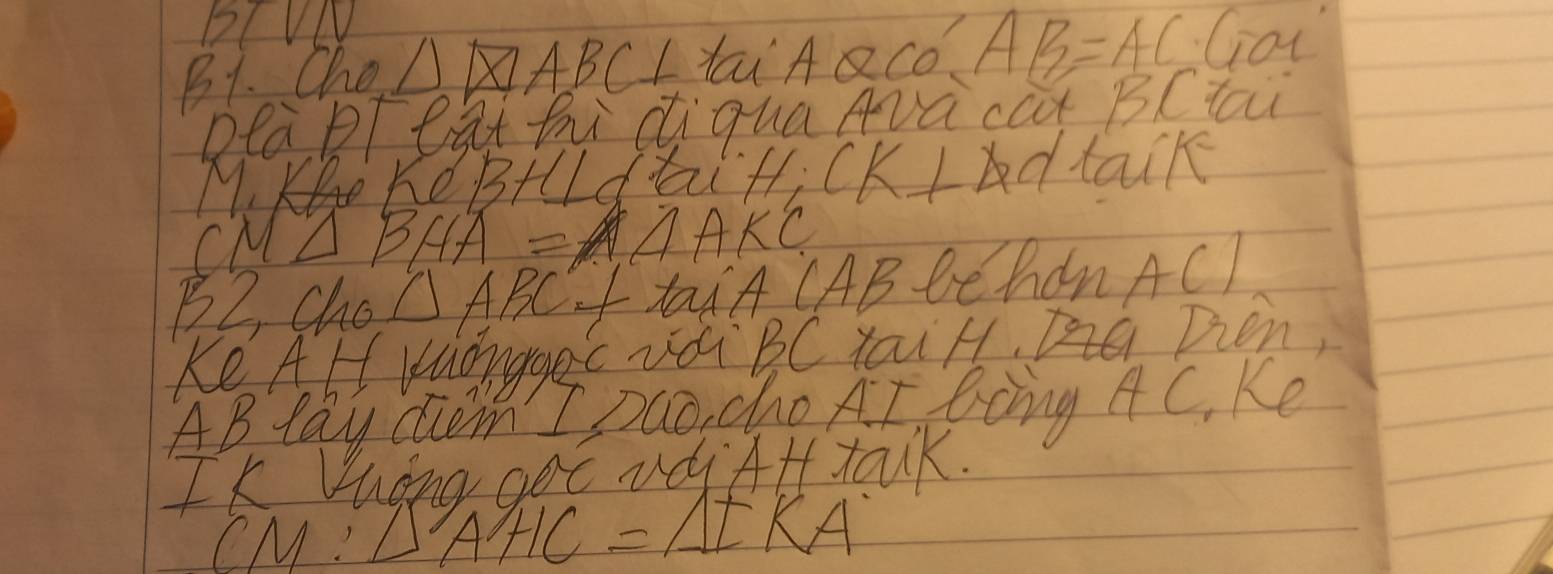 BTVN
B1. Cho Δ ABC ⊥ tại A có AB = AC. Gọi
D là ĐT bất kì đi qua A và cắt BC tại
M. Kẻ BH ⊥ d tại H; CK ⊥ d tại K
CM Δ BHA = Δ AKC
B2, Cho Δ ABC ⊥ tại A (AB bé hơn AC)
Kẻ AH vuông góc với BC tại H. Trên,
AB lấy điểm I sao cho AI bằng AC. Kẻ
IK vuông góc với AH tại K.
CM: Δ AHC = ΔIKA